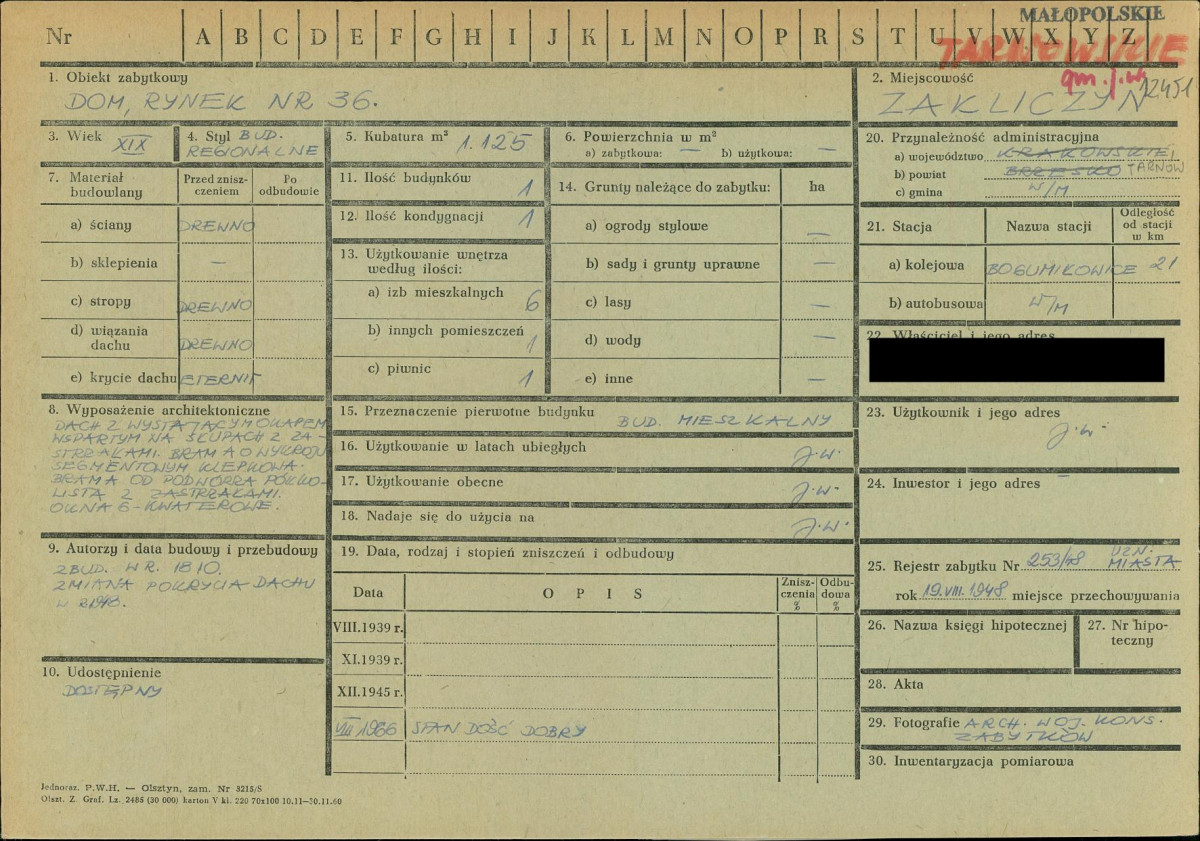 MAŁOPOLSKIE
TARNOWSKIE
gm. j.w.
12451
Nr A B C D E F G H I J K L M N O P R S T U V W X Y Z
1. Obiekt zabytkowy
DOM, RYNEK NR 36.
2. Miejscowość
ZAKLICZYN
3. Wiek XIX
4. Styl BUD.
REGIONALNE
5. Kubatura m³ 1.125
6. Powierzchnia w m²
a) zabytkowa: — b) użytkowa: —
7. Materiał budowlany
Przed znisz-czeniem
Po odbudowie
a) ściany DREWNO
b) sklepienia —
c) stropy DREWNO
d) wiązania dachu DREWNO
e) krycie dachu ETERNIT
8. Wyposażenie architektoniczne
DACH Z WYSTAJĄCYM OKAPEM
WSPARTYM NA SŁUPACH Z ZA-
STRZAŁAMI. BRAMA O WYKROJU
SEGMENTOWYM KLEPKOWA.
BRAMA OD PODWÓRZA PÓŁKO-
LISTA Z ZASTRZAŁAMI.
OKNA 6-KWATEROWE.
9. Autorzy i data budowy i przebudowy
ZBUD. W R. 1810.
ZMIANA POKRYCIA DACHU
W R. 1948.
10. Udostępnienie
DOSTĘPNY
11. Ilość budynków 1
12. Ilość kondygnacji 1
13. Użytkowanie wnętrza
według ilości:
a) izb mieszkalnych 6
b) innych pomieszczeń 1
c) piwnic 1
14. Grunty należące do zabytku: ha
a) ogrody stylowe —
b) sady i grunty uprawne —
c) lasy —
d) wody —
e) inne —
15. Przeznaczenie pierwotne budynku BUD. MIESZKALNY
16. Użytkowanie w latach ubiegłych j.w.
17. Użytkowanie obecne j.w.
18. Nadaje się do użycia na j.w.
19. Data, rodzaj i stopień zniszczeń i odbudowy
Data OPIS Znisz-czenia % Odbu-dowa %
VIII.1939 r.
XI.1939 r.
XII.1945 r.
VIII 1966 STAN DOŚĆ DOBRY
20. Przynależność administracyjna
a) województwo KRAKOWSKIE,
b) powiat BRZESKO TARNÓW
c) gmina W/M
21. Stacja
Nazwa stacji
Odległość od stacji w km
a) kolejowa BOGUMIŁOWICE 21
b) autobusowa W/M
22. Właściciel i jego adres
23. Użytkownik i jego adres
j.w.
24. Inwestor i jego adres —
25. Rejestr zabytku Nr 253/48 UZN. MIASTA
rok 19.VIII.1948 miejsce przechowywania
26. Nazwa księgi hipotecznej
27. Nr hipo-teczny
28. Akta
29. Fotografie ARCH. WOJ. KONS.
ZABYTKÓW
30. Inwentaryzacja pomiarowa
Jednoraz. P.W.H. — Olsztyn, zam. Nr 3215/S
Olszt. Z. Graf. Lz. 2485 (30 000) karton V kl. 220 70x100 10.11—30.11.60